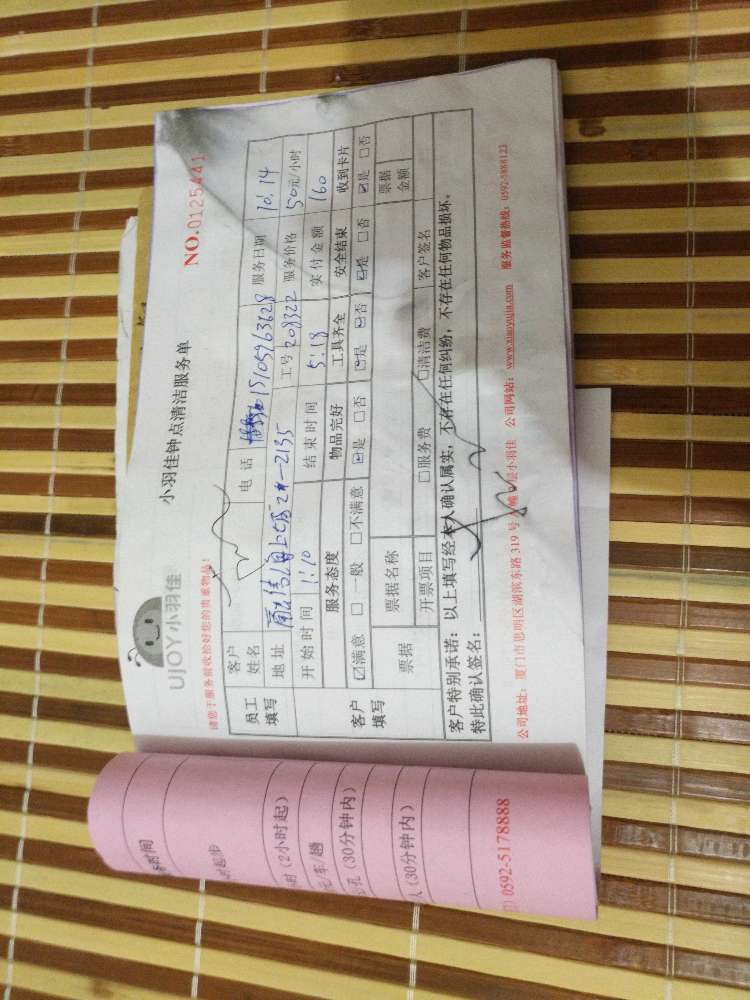 UJOY小羽佳
小羽佳钟点清洁服务单
NO.0125441
请您于服务前收拾好您的贵重物品!
员工填写
客户姓名
电话
15105963628
服务日期
10.14
地址
2135
工号
208322
服务价格
50元/小时
开始时间
1:10
结束时间
5:18
实付金额
160
客户填写
服务态度
物品完好
工具齐全
安全结束
收到卡片
☑满意 □一般 □不满意
☑是 □否
☑是 ☑否
☑是 □否
☑是 □否
票据
票据名称
票据金额
开票项目
□服务费
□清洁费
客户签名
客户特别承诺:以上填写经本人确认属实,不存在任何纠纷,不存在任何物品损坏。
特此确认签名:
公司地址:厦门市思明区湖滨东路 319 号 层小羽佳 公司网站:www.xiaoyujia.com 服务监督热线:0592-5888123
时间
时(2小时起)
元/车/趟
孔(30分钟内)
人(30分钟内)
0592-5178888